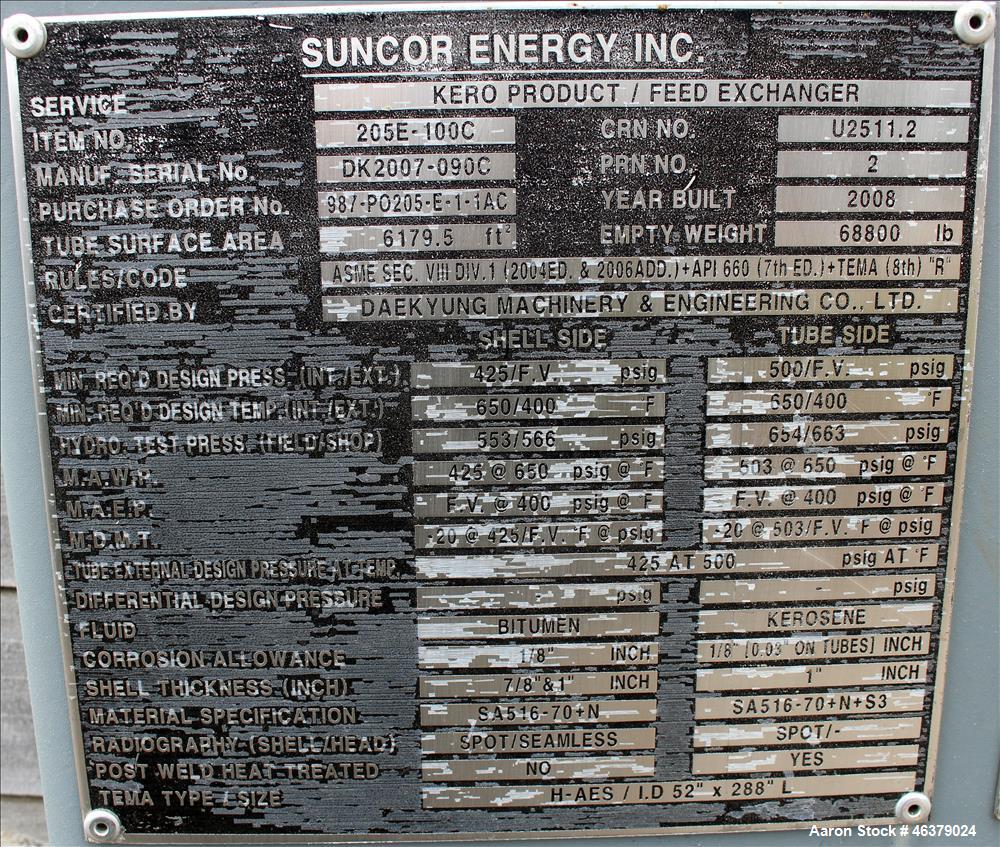 SUNCOR ENERGY INC.
SERVICE KERO PRODUCT / FEED EXCHANGER
ITEM NO. 205E-100C CRN NO. U2511.2
MANUF. SERIAL No. DK2007-090C PRN NO. 2
PURCHASE ORDER No. 987-PO205-E-1-1AC YEAR BUILT 2008
TUBE SURFACE AREA 6179.5 ft² EMPTY WEIGHT 68800 lb
RULES/CODE ASME SEC. VIII DIV.1 (2004ED. & 2006ADD.)+API 660 (7th ED.)+TEMA (8th) "R"
CERTIFIED BY DAEKYUNG MACHINERY & ENGINEERING CO., LTD.
SHELL SIDE TUBE SIDE
MIN. REQ'D DESIGN PRESS. (INT./EXT.) 425/F.V. psig 500/F.V. psig
MIN. REQ'D DESIGN TEMP. (INT./EXT.) 650/400 °F 650/400 °F
HYDRO. TEST PRESS. (FIELD/SHOP) 553/566 psig 654/663 psig
M.A.W.P. 425 @ 650 psig @ °F 503 @ 650 psig @ °F
M.A.E.P. F.V. @ 400 psig @ °F F.V. @ 400 psig @ °F
M.D.M.T. -20 @ 425/F.V. °F @ psig -20 @ 503/F.V. °F @ psig
TUBE EXTERNAL DESIGN PRESSURE AT TEMP. 425 AT 500 psig AT °F
DIFFERENTIAL DESIGN PRESSURE - psig - psig
FLUID BITUMEN KEROSENE
CORROSION ALLOWANCE 1/8" INCH 1/8" [0.03" ON TUBES] INCH
SHELL THICKNESS (INCH) 7/8"&1" INCH 1" INCH
MATERIAL SPECIFICATION SA516-70+N SA516-70+N+S3
RADIOGRAPHY (SHELL/HEAD) SPOT/SEAMLESS SPOT/-
POST WELD HEAT TREATED NO YES
TEMA TYPE / SIZE H-AES / I.D 52" x 288" L
Aaron Stock # 46379024